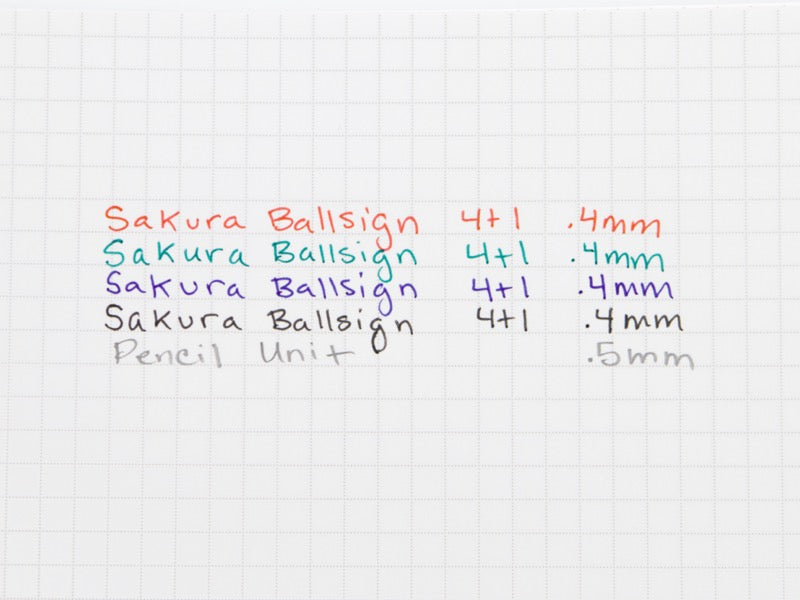 Sakura Ballsign 4+1 .4mm
Sakura Ballsign 4+1 .4mm
Sakura Ballsign 4+1 .4mm
Sakura Ballsign 4+1 .4mm
Pencil Unit .5mm